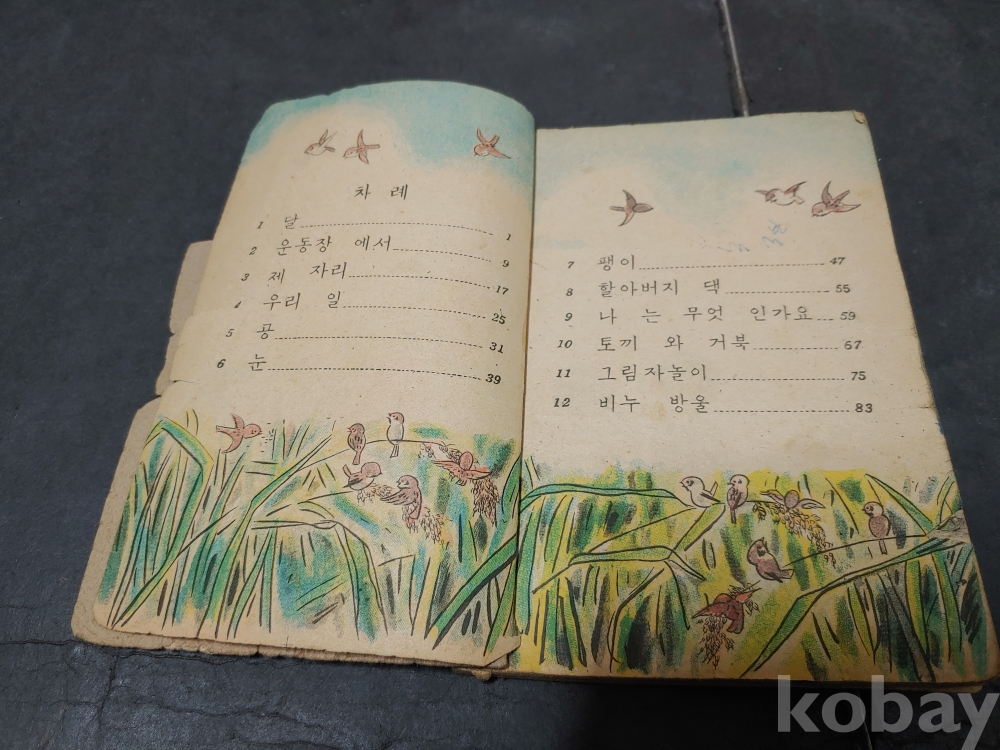 차 례
1 달 1
2 운동장 에서 9
3 제 자리 17
4 우리 일 25
5 공 31
6 눈 39
7 팽이 47
8 할아버지 댁 55
9 나 는 무엇 인가요 59
10 토끼 와 거북 67
11 그림자놀이 75
12 비누 방울 83
kobay